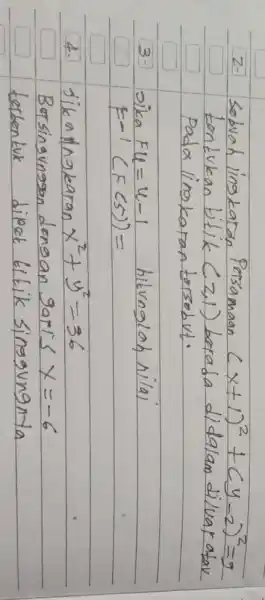 2. Sebuah lingkaran Persamaan (x+1)² + (y-2)² = 9
tentukan titik (2,1) berada didalam diluar atau
Pada lingkaran tersebut.
3. Jika F4 = 4-1 hitunglah nilai
F-1 (F(5)) =
4. Jika lingkaran x² + y² = 36
Bersinggungan dengan garis x = -6
berbentuk di titik singgungnya